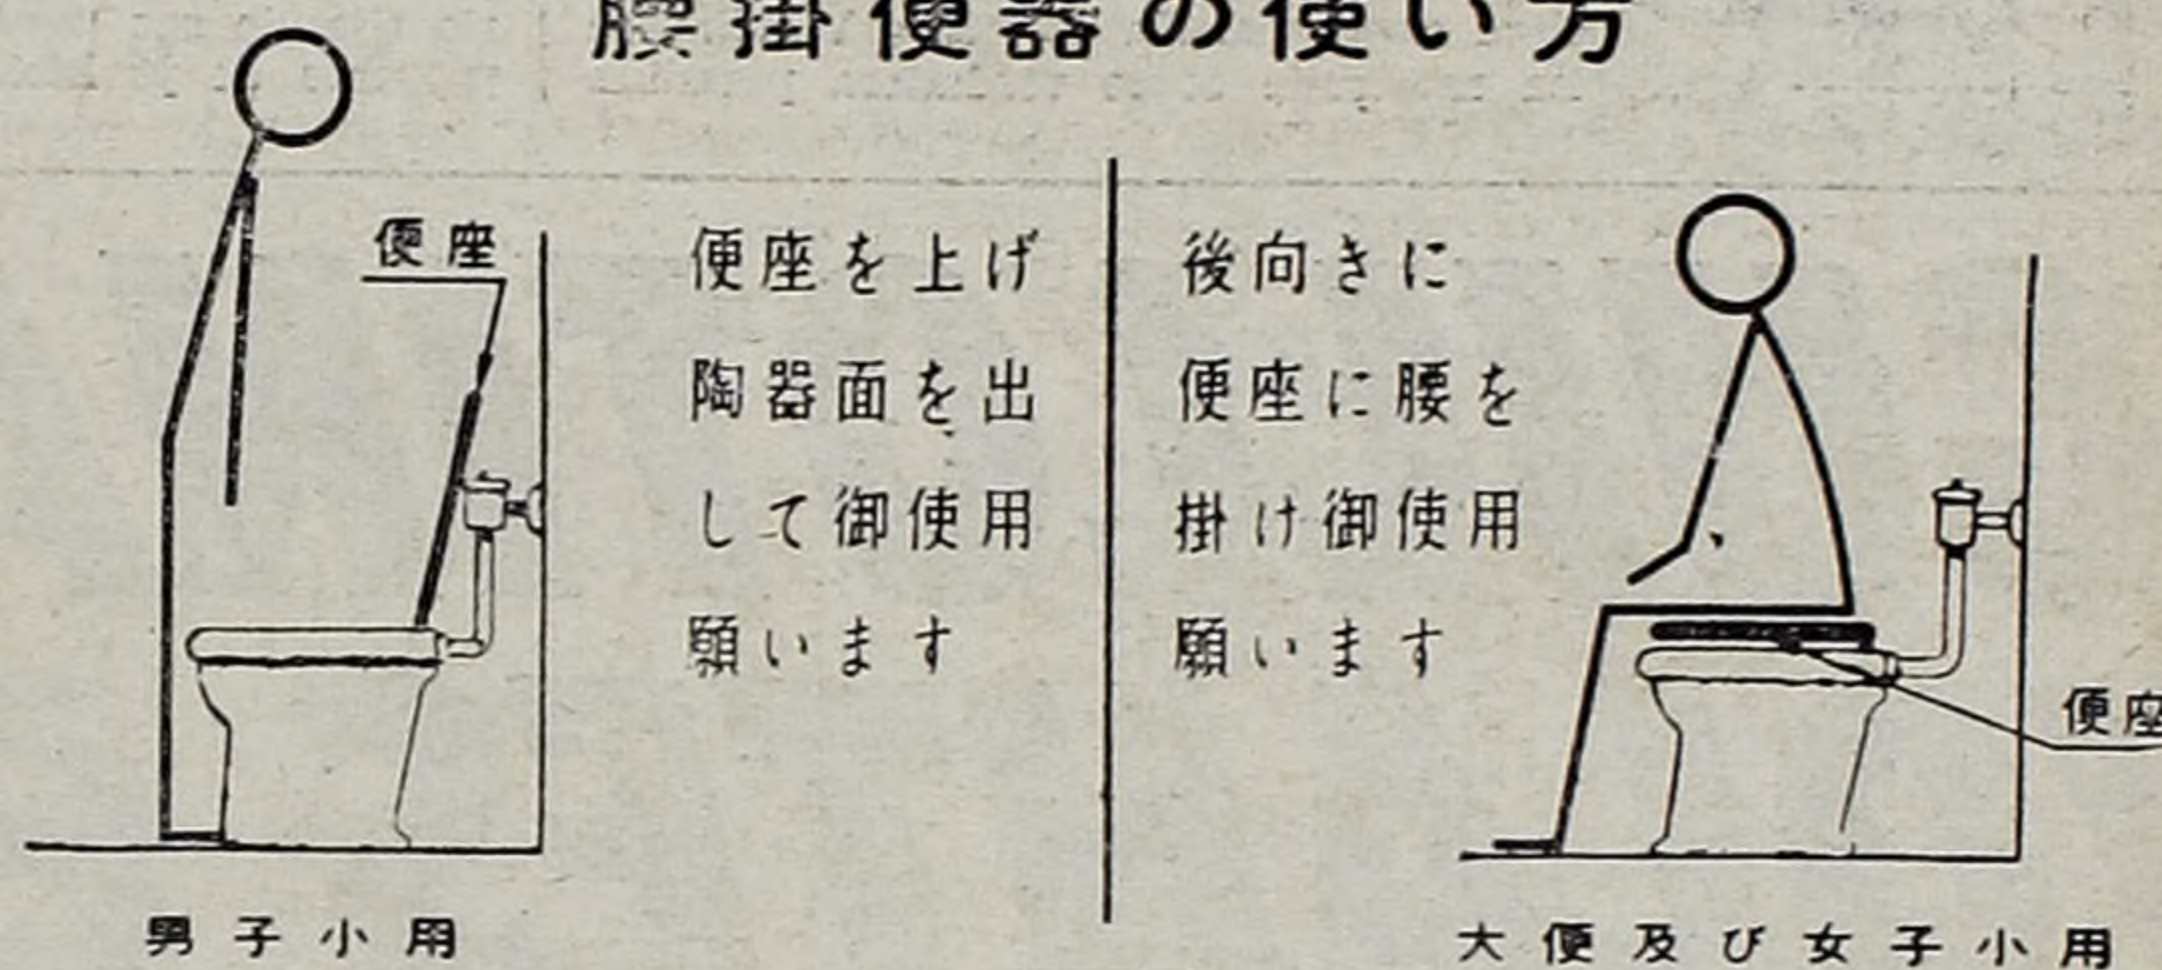 腰掛便器の使い方
便座
便座を上げ
陶器面を出
して御使用
願います
男子小用
後向きに
便座に腰を
掛け御使用
願います
便座
大便及び女子小用